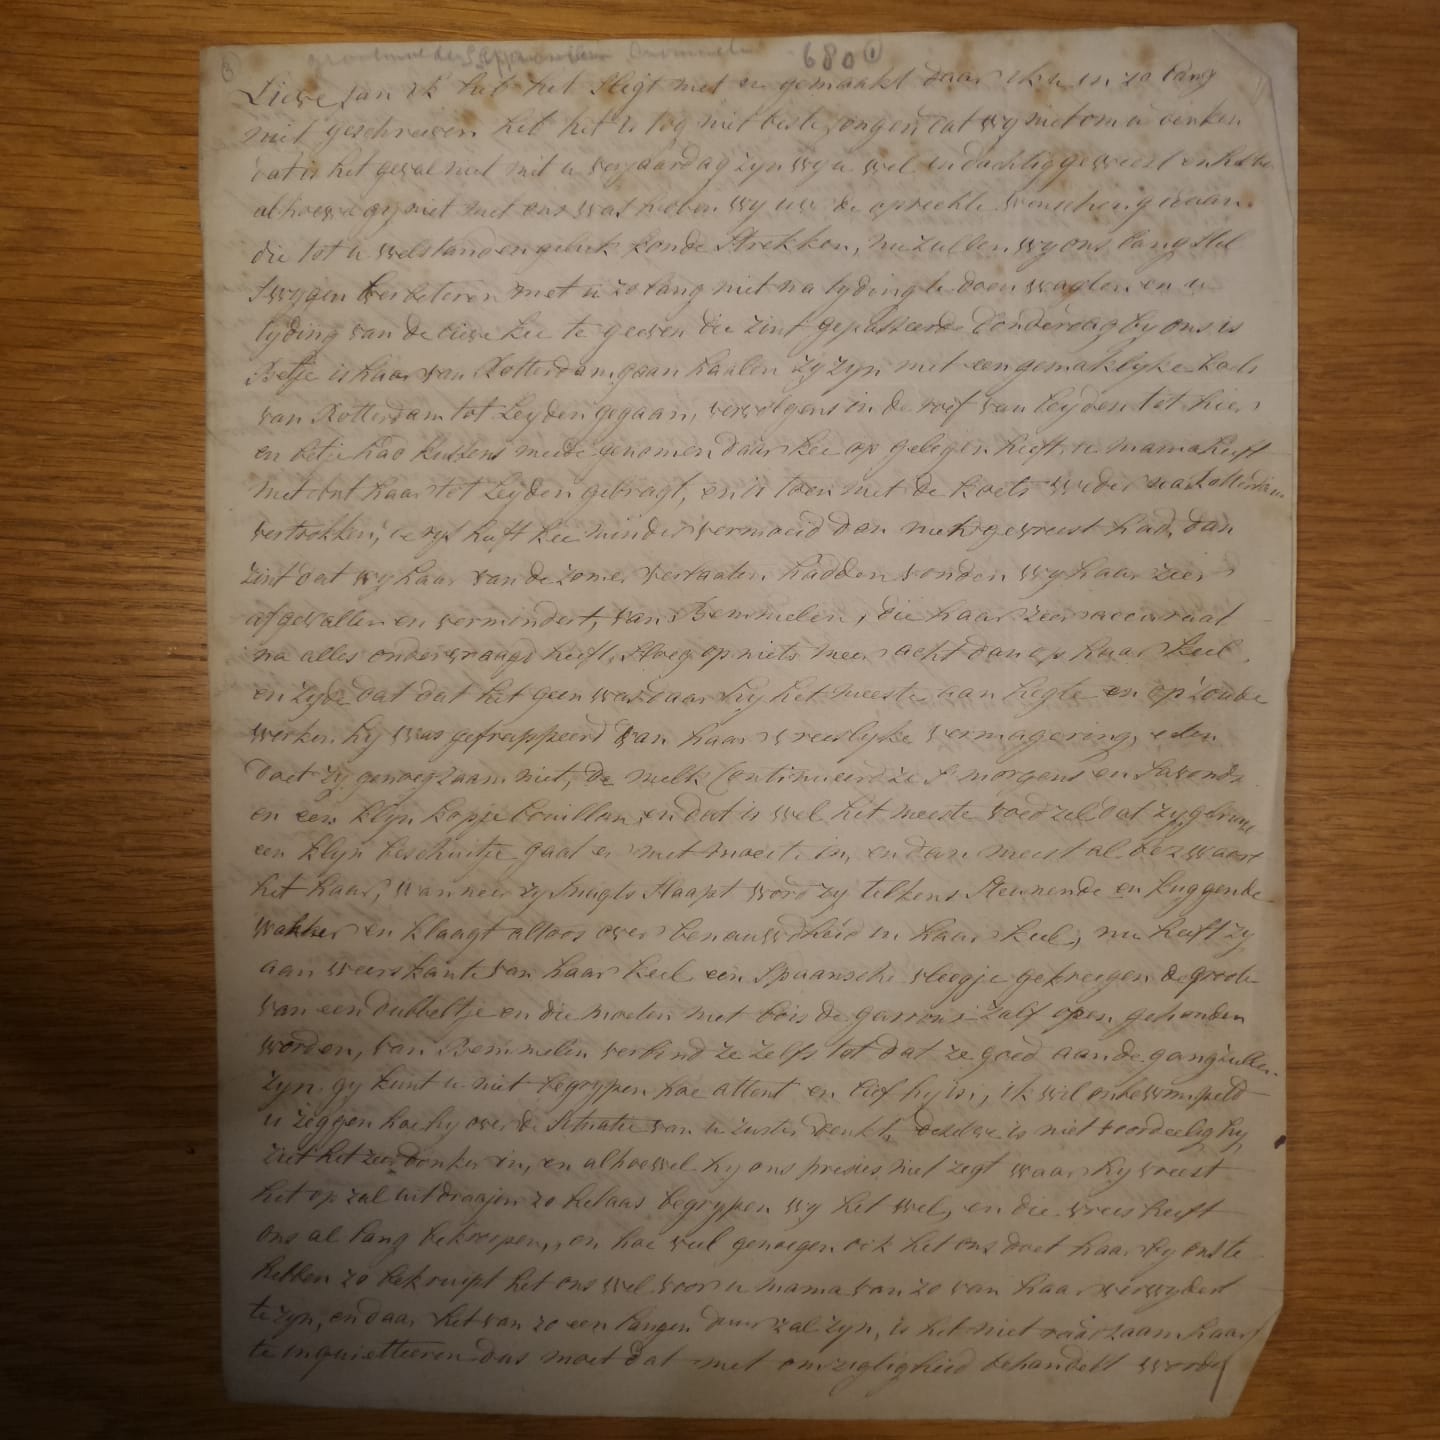 680 1
Lieve Jan ik heb het slegt met u gemaakt daar ik u in zo lang
niet geschreeven heb het is tog niet beste jongen dat wy niet om u denken
dat is het geval niet met u verjaardag zyn wy u wel indachtig geweest en hebben
alhoewel gy niet met ons was hebben wy uw de oprechte wenschen gedaan
die tot u welstand en geluk konde strekken, nu zullen wy ons lang stil
swygen verbeteren met u zo lang niet na tyding te doen wagten en u
tyding van de lieve Kee te geeven die zint gepasseerde Donderdag by ons is
Betje is haar van Rotterdam gaan haalen zy zyn met een gemaklyke koets
van Rotterdam tot Leyden gegaan, vervolgens in de roef van Leyden tot hier
en betje had kussens meede genomen daar kee op gelegen heeft, u mama heeft
met ons haar tot Leyden gebragt, en is toen met de koets weder na Rotterdam
vertrokken, de rys heeft kee minder vermoeid dan men gevreest had, dan
zint dat wy haar van de zomer verlaaten hadden vonden wy haar zeer
afgevallen en vermindert, van Bemmelen, die haar zeer accuraat
na alles ondervraagd heeft, sloeg op niets meer acht dan op haar keel,
en zyde dat dat het geen was daar hy het meeste aan hegte en op zoude
werken hy was gefrappeerd van haar vreeslyke vermagering, eten
doet zy genoegzaam niet, de melk Continueerd ze s morgens en savonds
en een klyn kopje bouillon, en dat is wel het meeste voedzel dat zy gebruikt
een klyn beschuitje gaat er met moeite in, en dan meest al bezwaart
het haar, wanneer zy snagts slaapt word zy telkens steunende en kuggende
wakker en klaagt altoos over benauwdheid in haar keel, nu heeft zy
aan weerskante van haar keel een Spaansche vliegje gekreegen de groote
van een dubbeltje en die moeten met bois de garou zalf open gehouden
worden, van Bemmelen verbind ze zelfs tot dat ze goed aan de gang zullen
zyn. gy kunt u niet begrypen hoe attent en lief hy is, ik wil onbewimpeld
u zeggen hoe hy over de situatie van u zuster denkt, dezelve is niet voordeelig hy
ziet het zeer donker in, en alhoewel hy ons precies niet zegt waar hy vreest
het op zal uitdraajen zo helaas begrypen wy het wel, en die vrees heeft
ons al lang bekroopen, en hoe veel genoegen ook het ons doet haar by ons te
hebben zo bekruipt het ons wel voor u mama van zo van haar verwydert
te zyn, en daar het van zo een langen duur zal zyn, is het niet raadzaam haar
te inquietteeren dus moet dat met omzigtigheid behandelt worden